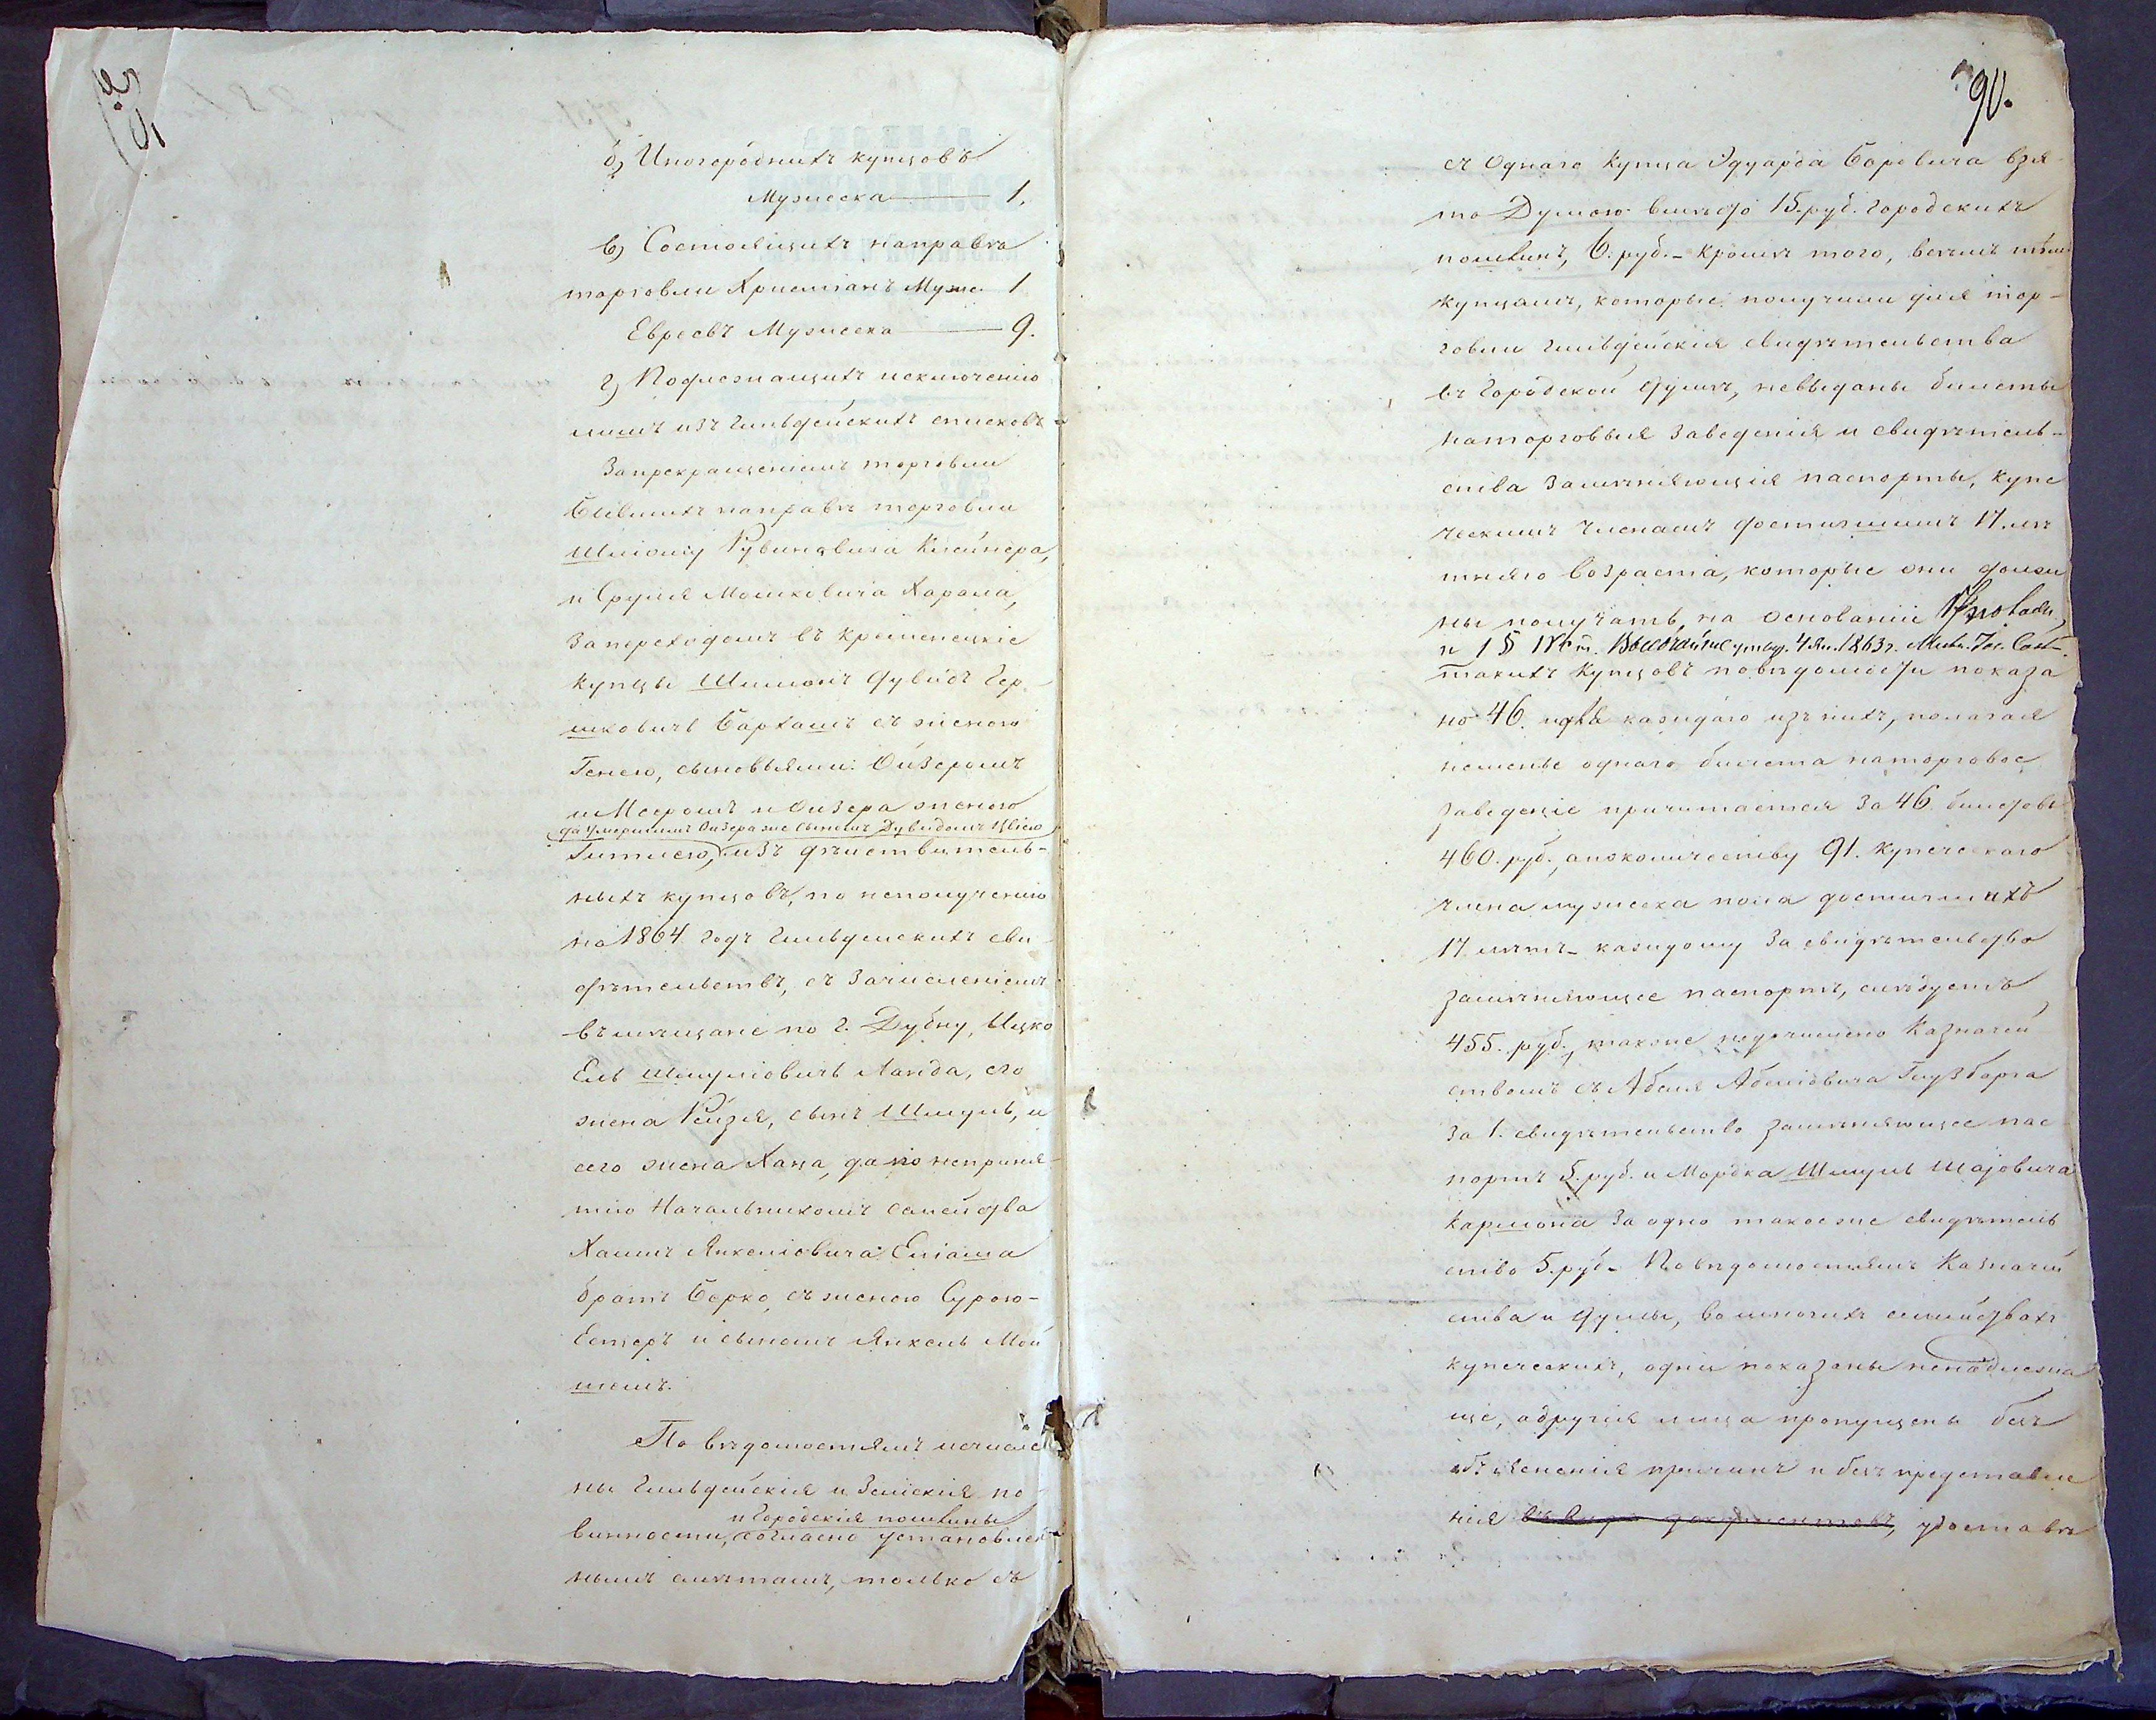 б) Иногородныхъ купцовъ
Мужеска — 1.
в) Состоящихъ направѣ
торговли Христіанъ Муже. 1
Евреевъ Мужеска — 9.
г) Подлежащихъ исключенію
лицъ изъ гильдейскихъ списковъ
Запрекращеніемъ торговли
бывшихъ направѣ торговли
Шліому Рувиновича Клейнера,
и Сруля Мошковича Харала,
Запереходомъ въ Кременецкіе
купцы Шимонъ Дувидъ Гер-
шковичъ Бархашъ съ женою
Генею, сыновьями: Ойзеромъ
и Мееромъ и Ойзера женою
да умершимъ Ойзера же сыномъ Дувидомъ Цвіею
Гитлею, изъ дѣйствитель-
ныхъ купцовъ, по неполученію
на 1864 годъ гильдейскихъ сви-
дѣтельствъ, съ зачисленіемъ
въ мѣщане по г. Дубну, Ицко
Ель Шмуліовичъ Ланда, его
жена Рейзя, сынъ Шмуль, и
сего жена Хана, да по неприня-
тію Начальникомъ семейства
Хаимъ Янкеліовича Еліаша
братъ Берко, съ женою Сурою-
Естеръ и сыномъ Янкель Мой
шемъ.
По вѣдомостямъ исчисле
ны гильдейскія и Земскія по-
и Городскія пошлины
винности, согласно установлен-
нымъ смѣтамъ, только съ
90.
съ одного купца Эдуарда Боревича взя-
то Думою вмѣсто 15. руб. городскихъ
пошлинъ, 6. руб. - Кромѣ того, всѣмъ тѣмъ
купцамъ, которые получили для тор-
говли гильдейскія свидѣтельства
въ городской думѣ, невыданы билеты
на торговыя заведенія и свидѣтель-
ства замѣняющія паспорты, купе
ческимъ членамъ достигшимъ 17. лѣ
тняго возраста, которые они должн
ны получать, на основаніи
такихъ купцовъ по вѣдомости показа
но 46. для каждаго изъ нихъ, полагая
неменѣе одного билета на торговое
заведеніе причитается за 46 билетовъ
460. руб., а по количеству 91. купеческаго
члена мужеска пола достигшихъ
17 лѣтъ - каждому за свидѣтельство
замѣняющее паспортъ, слѣдуетъ
455. руб., также недочислено Казначей
ствомъ съ Абеля Абеліовича Глузберга
за 1. свидѣтельство замѣняющее пас
портъ 5. руб. и Мордка Шмуль Шајовича
Кармона за одно такоеже свидѣтель
ство 5. руб. - По вѣдомостямъ Казначей
ства и думы, во многихъ семействахъ
купеческихъ, одни показаны ненадлежа
ще, а другія лица пропущены безъ
объясненія причинъ и безъ представле
нія въ видѣ документовъ, удостовѣ